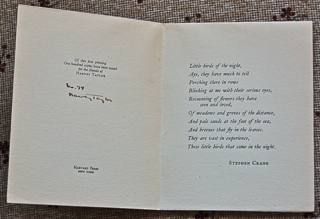 Of this first printing
One hundred copies have been made
for the friends of
HARVEY TAYLOR
No. 79
Harvey Taylor
HARVARD PRESS
NEW YORK
Little birds of the night,
Aye, they have much to tell
Perching there in rows
Blinking at me with their serious eyes,
Recounting of flowers they have
seen and loved,
Of meadows and groves of the distance,
And pale sands at the foot of the sea,
And breezes that fly in the leaves.
They are vast in experience,
These little birds that come in the night.
STEPHEN CRANE